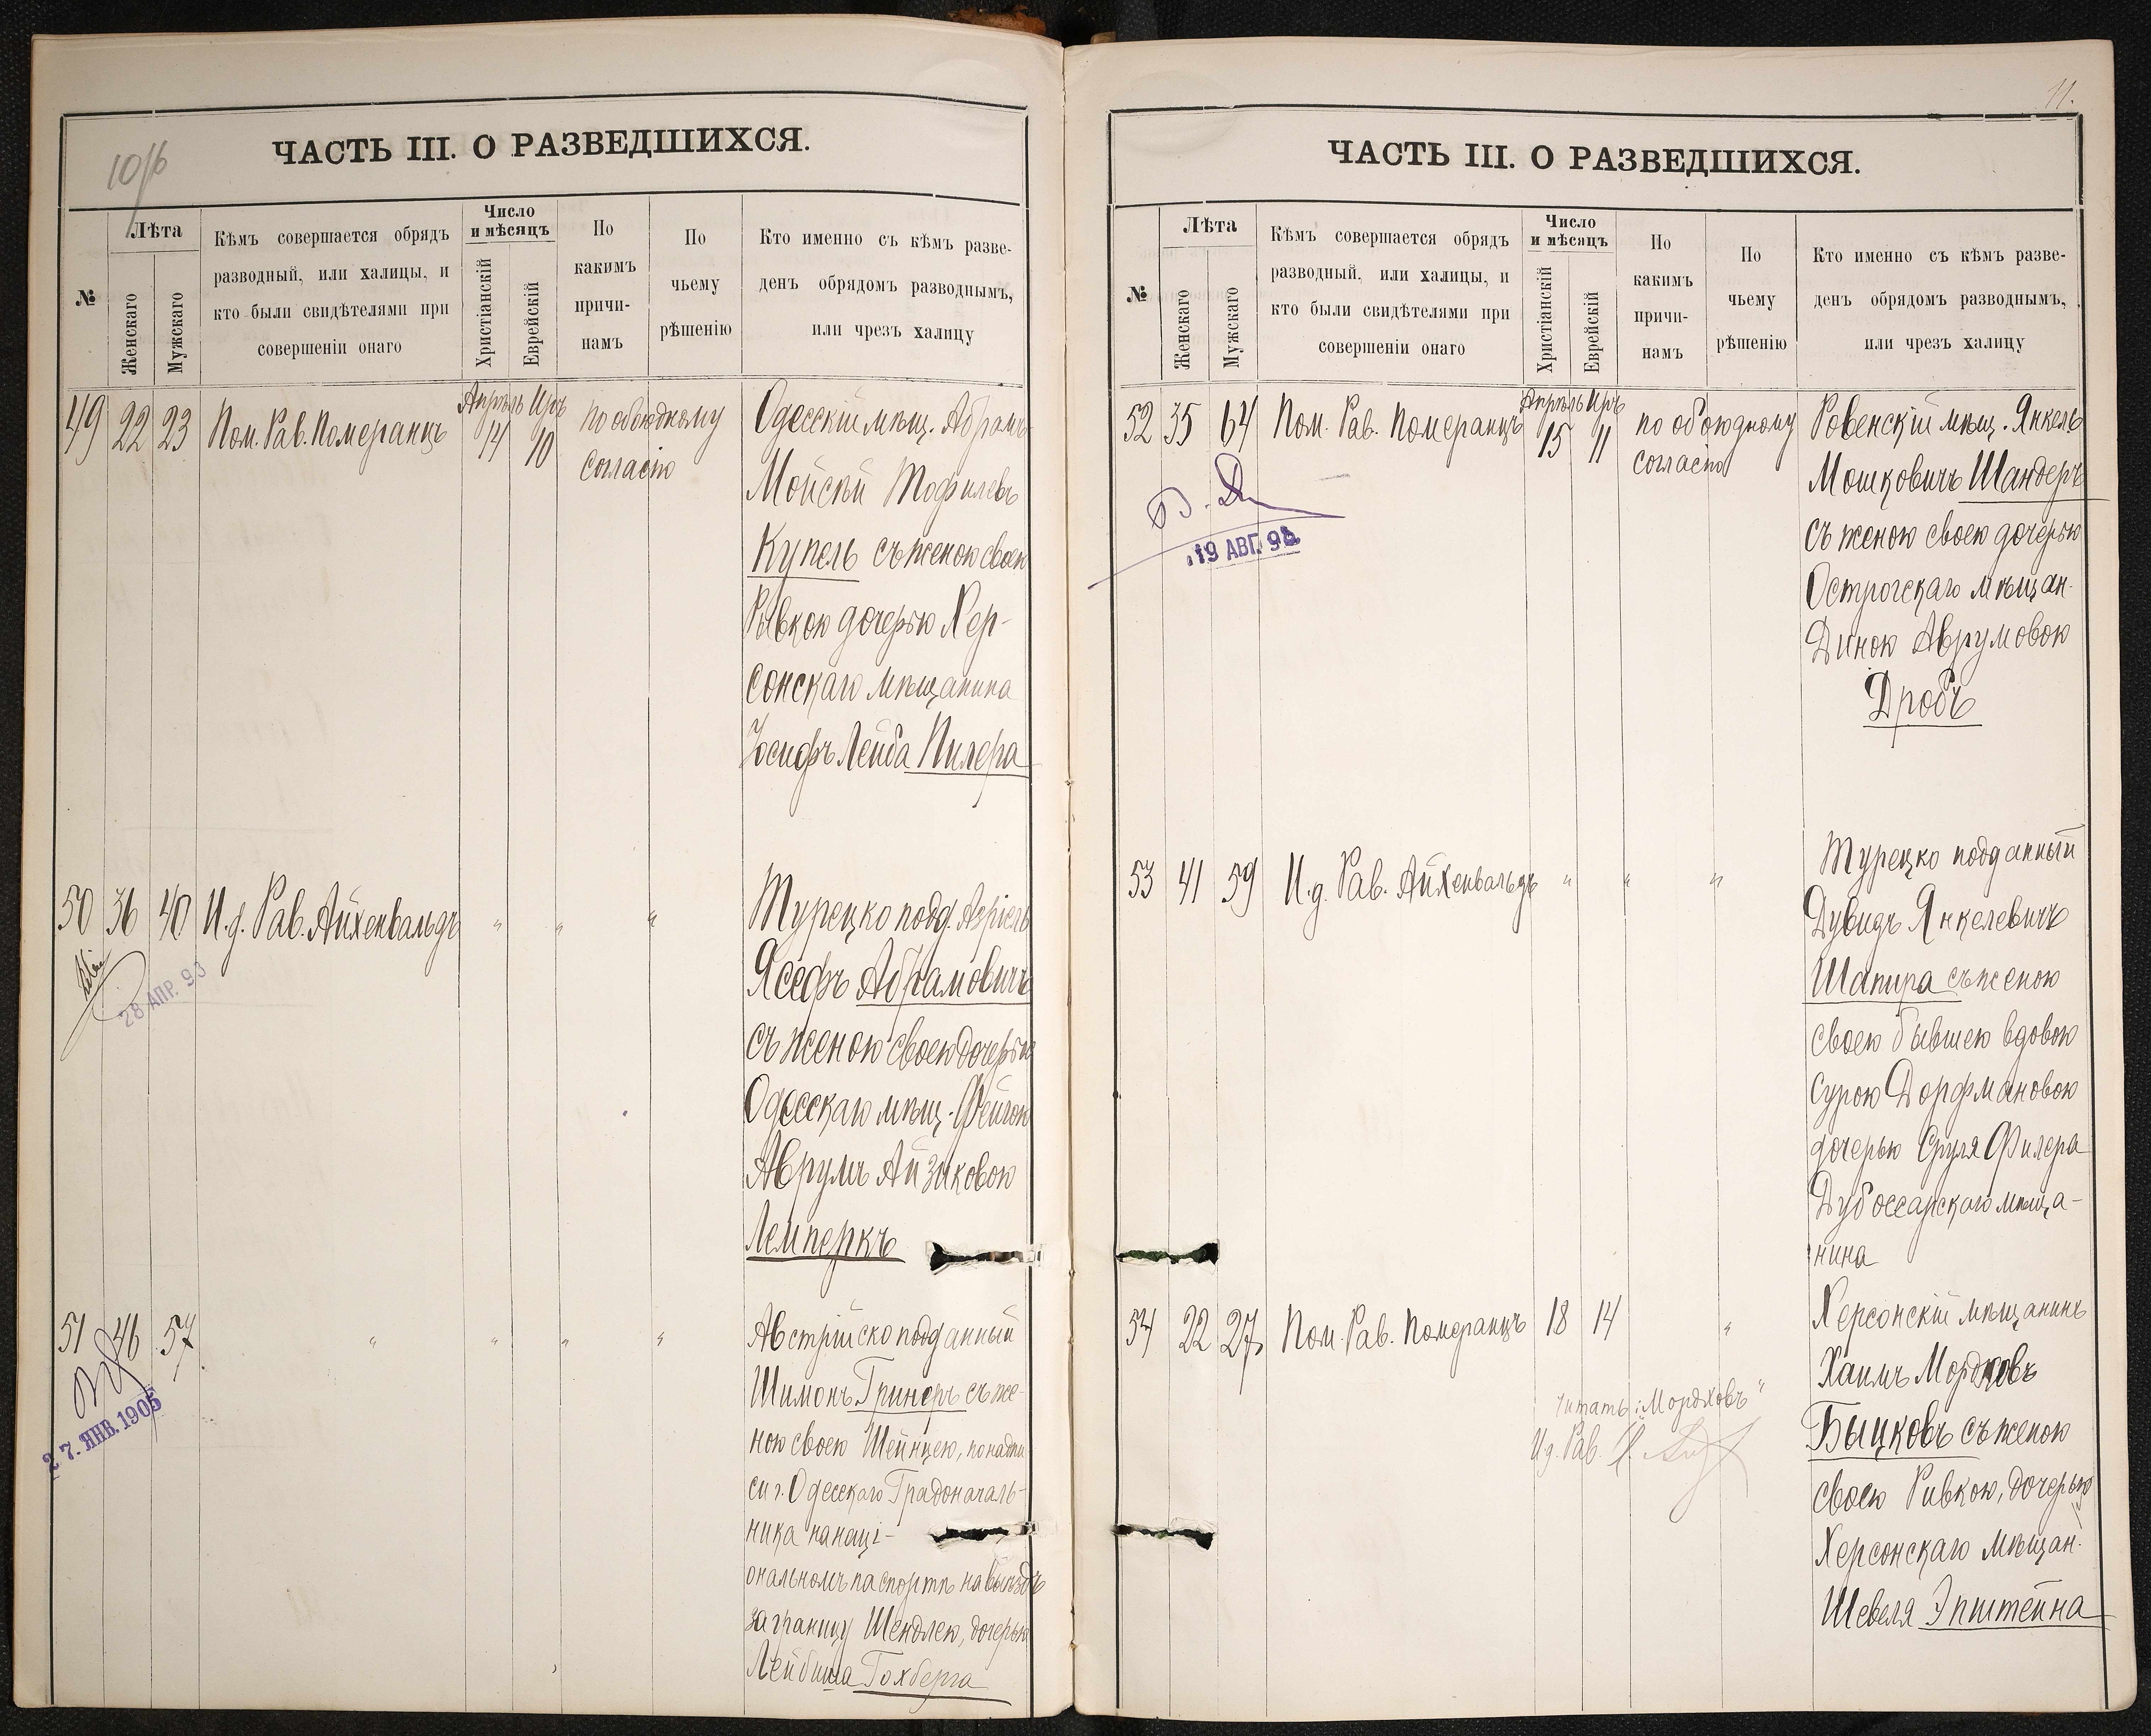 10/б
ЧАСТЬ III. О РАЗВЕДШИХСЯ.
№
Лѣта
Женскаго
Мужскаго
Кѣмъ совершается обрядъ
разводный, или халицы, и
кто были свидѣтелями при
совершеніи онаго
Число
и мѣсяцъ
Христіанскій
Еврейскій
По
какимъ
причи-
намъ
По
чьему
рѣшенію
Кто именно съ кѣмъ разве-
денъ обрядомъ разводнымъ,
или чрезъ халицу
49 22 23 Пом. Рав. Померанцъ
Апрѣль Иръ
14 10
по обоюдному
согласію
Одесскій мѣщ. Абрамъ
Мойсей Тофилевъ
Купель съ женою своею
Рывкою дочерью Хер-
сонскаго мѣщанина
Іосифъ Лейба Пилера
50 36 40 И.д. Рав. Айхенвальдъ " " "
28 АПР. 93
Турецко подд. Азріель
Ясефъ Абрамовичъ
съ женою своею дочерью
Одесскаго мѣщ. Фейгою
Аврумъ Айзиковою
Лемперкъ
51 46 57 " " " "
27. ЯНВ. 1905
Австрійско подданный
Шимонъ Гринеръ съ же-
ною своею Шейнцею, по надпи-
си г. Одесскаго Градоначаль-
ника на наці-
ональномъ паспортѣ на выѣздъ
заграницу Шендлею, дочерью
Лейбиша Гохберга
11.
ЧАСТЬ III. О РАЗВЕДШИХСЯ.
№
Лѣта
Женскаго
Мужскаго
Кѣмъ совершается обрядъ
разводный, или халицы, и
кто были свидѣтелями при
совершеніи онаго
Число
и мѣсяцъ
Христіанскій
Еврейскій
По
какимъ
причи-
намъ
По
чьему
рѣшенію
Кто именно съ кѣмъ разве-
денъ обрядомъ разводнымъ,
или чрезъ халицу
52 35 64 Пом. Рав. Померанцъ
Апрѣль Иръ
15 11
по обоюдному
согласію
19 АВГ. 98
Ровенскій мѣщ. Янкель
Мошковичъ Шандеръ
съ женою своею дочерью
Острогскаго мѣщан.
Диною Аврумовою
Дробъ
53 41 59 И.д. Рав. Айхенвальдъ " " "
Турецко подданный
Дувидъ Янкелевичъ
Шапира съ женою
своею бывшею вдовою
Сурою Дорфмановою
дочерью Сруля Филера
Дубоссарскаго мѣща-
нина
54 22 27 Пом. Рав. Померанцъ 18 14 "
Читать: "Мордховъ"
И.д. Рав.
Херсонскій мѣщанинъ
Хаимъ Мордковъ
Быцковъ съ женою
своею Ривкою, дочерью
Херсонскаго мѣщан.
Шевеля Эпштейна